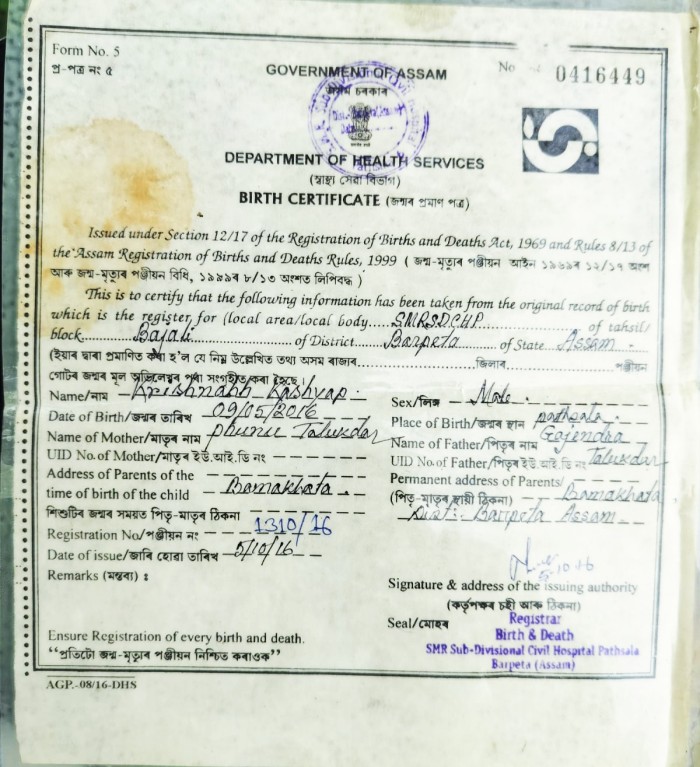 Form No. 5
প্ৰ-পত্ৰ নং ৫
No
0416449
GOVERNMENT OF ASSAM
অসম চৰকাৰ
DEPARTMENT OF HEALTH SERVICES
(স্বাস্থ্য সেৱা বিভাগ)
BIRTH CERTIFICATE (জন্মৰ প্ৰমাণ পত্ৰ)
Issued under Section 12/17 of the Registration of Births and Deaths Act, 1969 and Rules 8/13 of
the Assam Registration of Births and Deaths Rules, 1999 ( জন্ম-মৃত্যুৰ পঞ্জীয়ন আইন ১৯৬৯ৰ ১২/১৭ অংশ
আৰু জন্ম-মৃত্যুৰ পঞ্জীয়ন বিধি, ১৯৯৯ৰ ৮/১৩ অংশত লিপিবদ্ধ )
This is to certify that the following information has been taken from the original record of birth
which is the register for (local area/local body......SMRSDCHP......of tahsil/
block......Bajali......of District......Barpeta......of State...Assam...
(ইয়াৰ দ্বাৰা প্ৰমাণিত কৰা হ'ল যে নিম্ন উল্লেখিত তথ্য অসম ৰাজ্যৰ..................জিলাৰ..................পঞ্জীয়ন
গোটৰ জন্মৰ মূল অভিলেখৰ পৰা সংগৃহীত কৰা হৈছে।)
Name/নাম – Krishnabh Kashyap
Sex/লিঙ্গ – Male
Date of Birth/জন্মৰ তাৰিখ – 09/05/2016
Place of Birth/জন্মৰ স্থান pathsala
Name of Mother/মাতৃৰ নাম phunu Talukdar
Name of Father/পিতৃৰ নাম Gajendra
UID No. of Mother/মাতৃৰ ইউ.আই.ডি নং
UID No. of Father/পিতৃৰ ইউ.আই.ডি নং Talukdar
Address of Parents of the
time of birth of the child – Bamakhata
Permanent address of Parents/
(পিতৃ-মাতৃৰ স্থায়ী ঠিকনা) – Bamakhata
শিশুটিৰ জন্মৰ সময়ত পিতৃ-মাতৃৰ ঠিকনা
Dist: Barpeta Assam
Registration No/পঞ্জীয়ন নং – 1310/16
Date of issue/জাৰি হোৱা তাৰিখ – 5/10/16
Remarks (মন্তব্য) :
Signature & address of the issuing authority
(কৰ্তৃপক্ষৰ চহী আৰু ঠিকনা)
Seal/মোহৰ
Registrar
Birth & Death
SMR Sub-Divisional Civil Hospital Pathsala
Barpeta (Assam)
Ensure Registration of every birth and death.
“প্ৰতিটো জন্ম-মৃত্যুৰ পঞ্জীয়ন নিশ্চিত কৰাওক”
AGP.-08/16-DHS